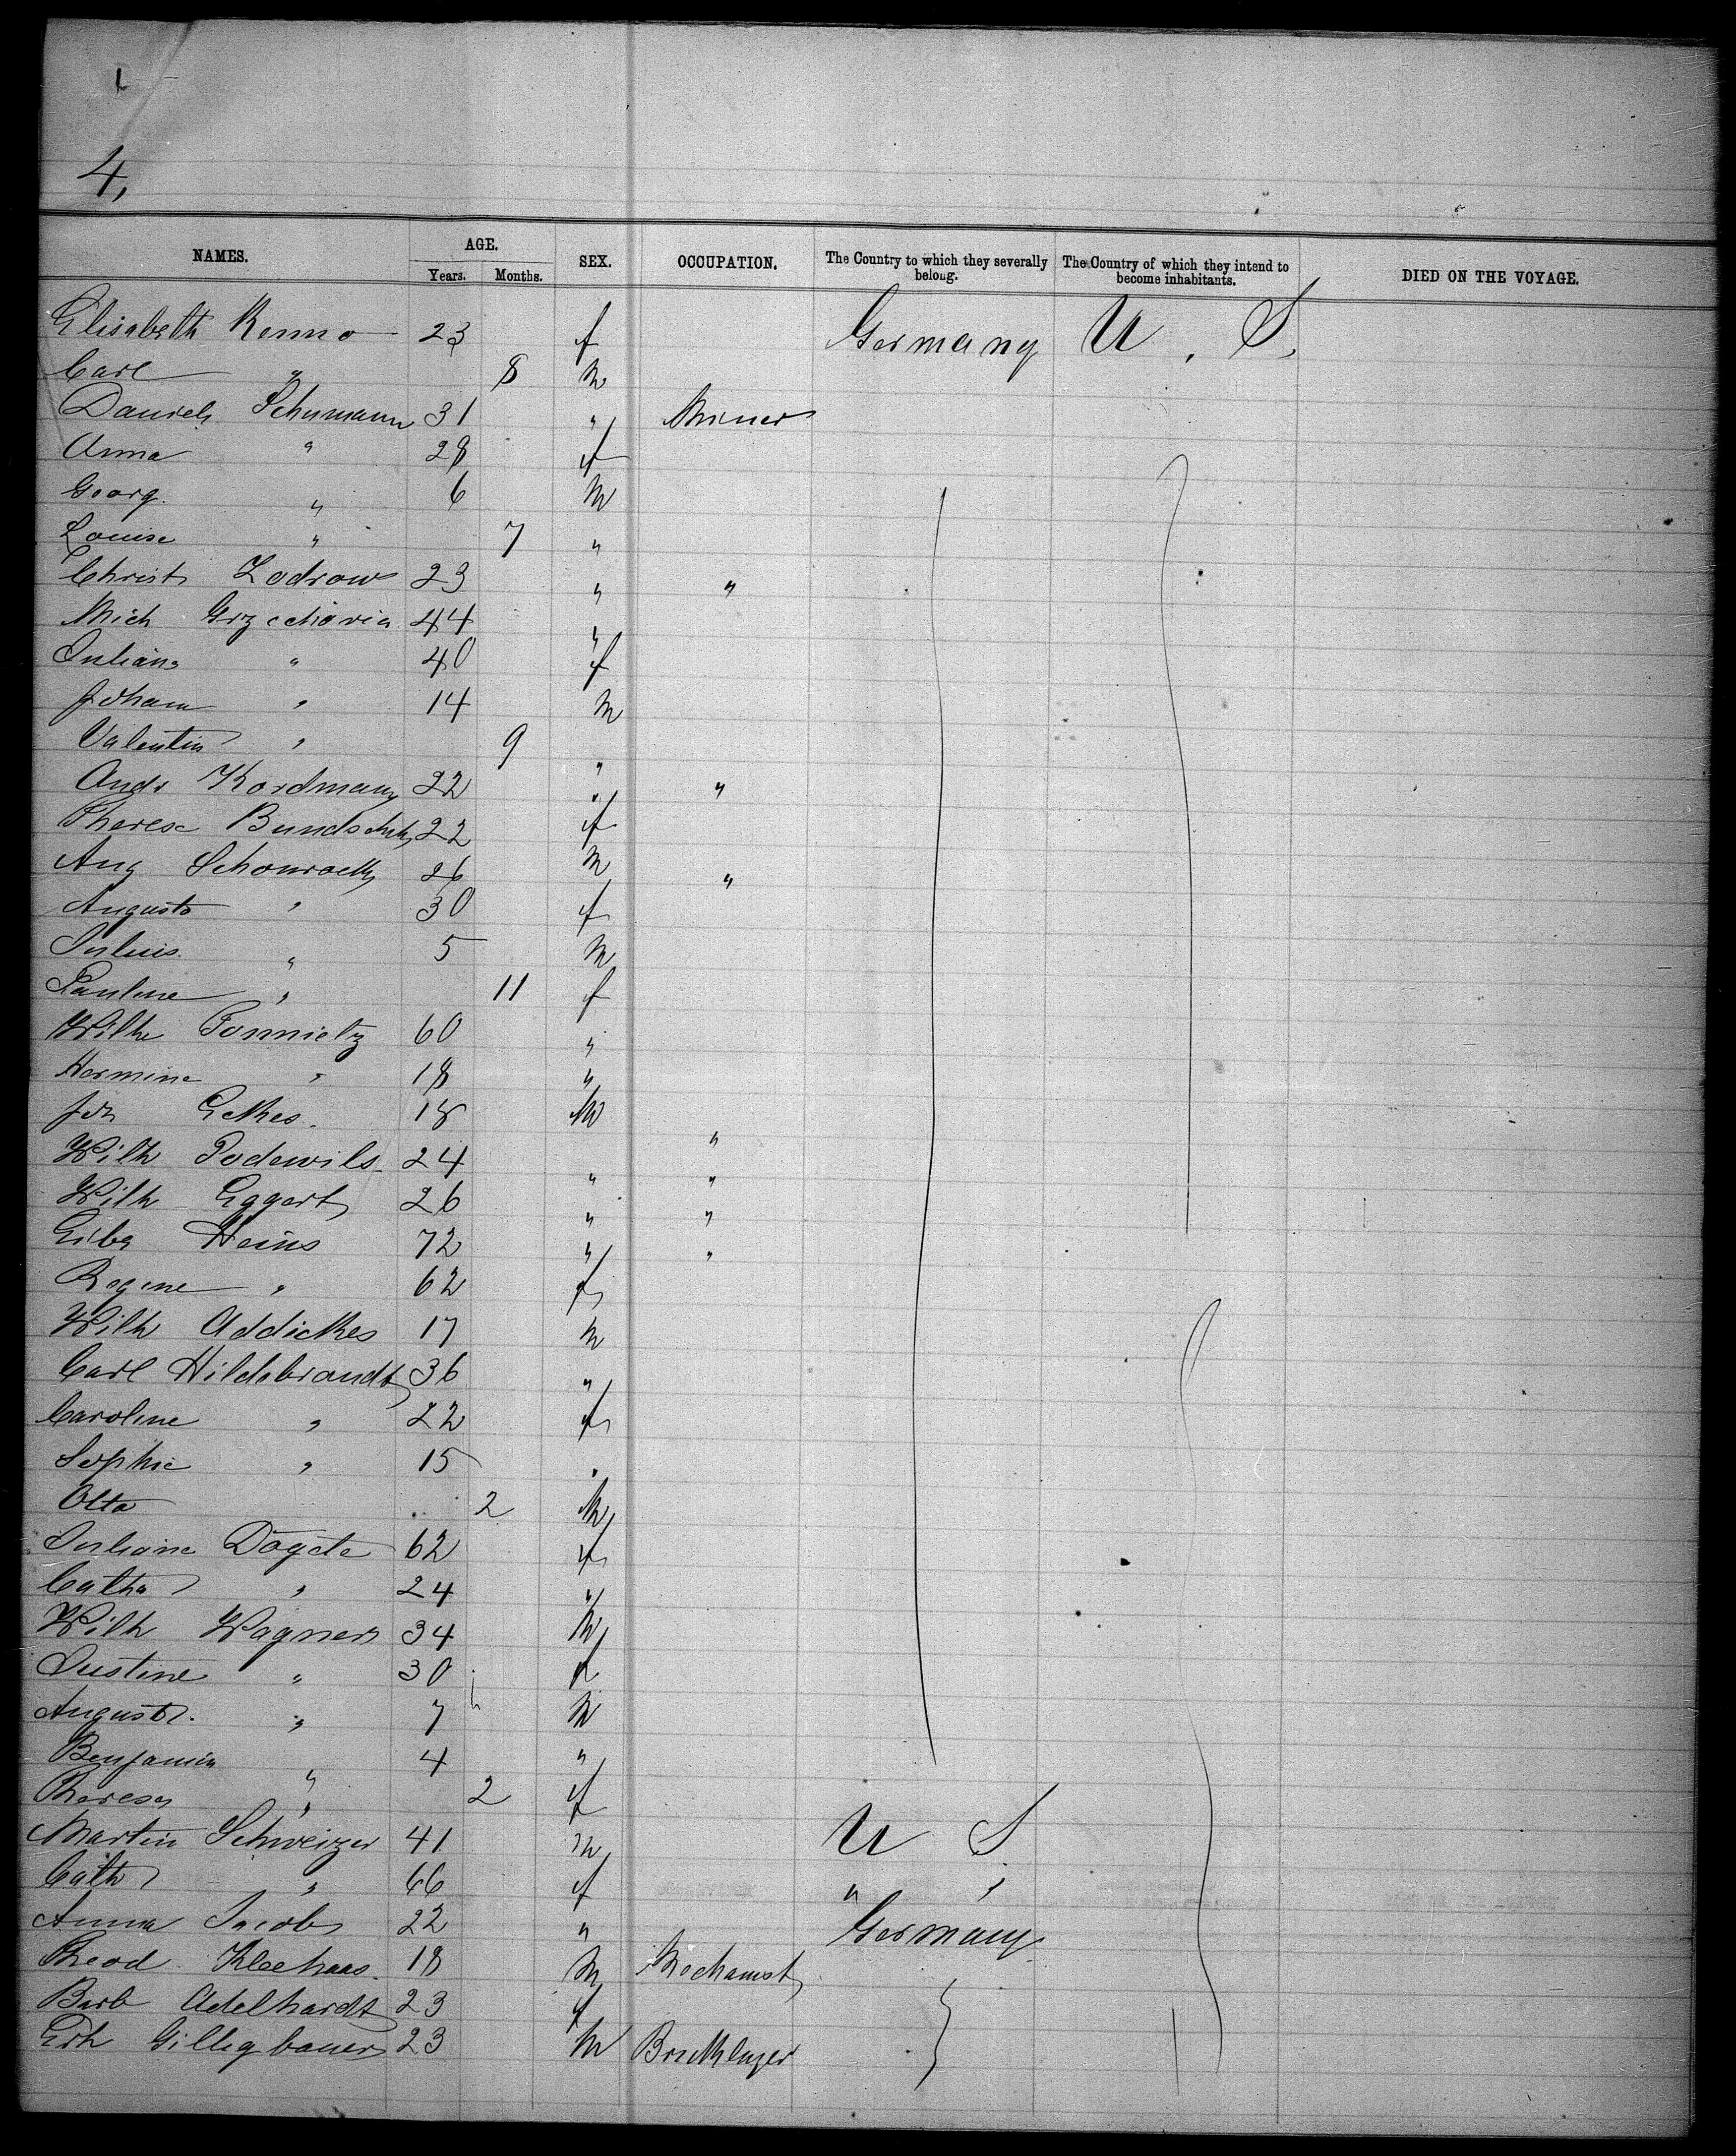 4,
NAMES. AGE. SEX. OCCUPATION. The Country to which they severally belong. The Country of which they intend to become inhabitants. DIED ON THE VOYAGE.
Years. Months.
Elisabeth Renno 23 f Germany U. S.
Carl " 8 m
Schumann 31 " Miner
Anna " 28 f
Georg. " 6 m
Louise " 7 "
Christ Lodrow 23 " "
Mich 44 "
Juliana " 40 f
Johann " 14 m
Valentin " 9 "
Andr Kordmann 22 " "
Therese Bundschuh 22 f
Aug 26 m "
Augusta " 30 f
Julius. " 5 m
Pauline " 11 f
Wilhe 60 "
Hermine " 18 "
Joh 18 m "
Wilh Podewils. 24 " "
Wilh Eggert 26 " "
Heins 72 " "
Regine " 62 f
Wilh Addickes 17 m
Carl Hildebrandt 36 "
Caroline " 22 f
Sophie " 15 "
Otto 2 m
Juliane 62 f
Catha " 24 "
Wilh Wagner 34 m
Justine " 30 f
August. " 7 m
Benjamin " 4 "
Therese " 2 f
Martin Schweizer 41 m U S
Cath " 66 f " "
Anna Jacob 22 " Germany
Theod. Kleehaas. 18 m Mechanist
Barb Adelhardt 23 f
Erh Gilligbauer 23 m Bricklayer